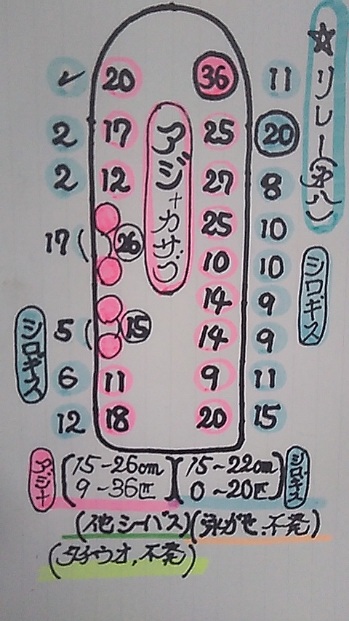 ☆リレー(第八)
シロギス
アジ+カサゴ
シロギス
✓ 20 36 11
2 17 25 20
2 12 27 8
17( 26 25 10
10 10
14 9
5( 15 14 9
6 11 9 11
12 18 20 15
アジ+ (15-26cm 9~36匹) (15~22cm 0~20匹) シロギス
(他シーバス)(泳がせ.不発)
(タチウオ,不発)